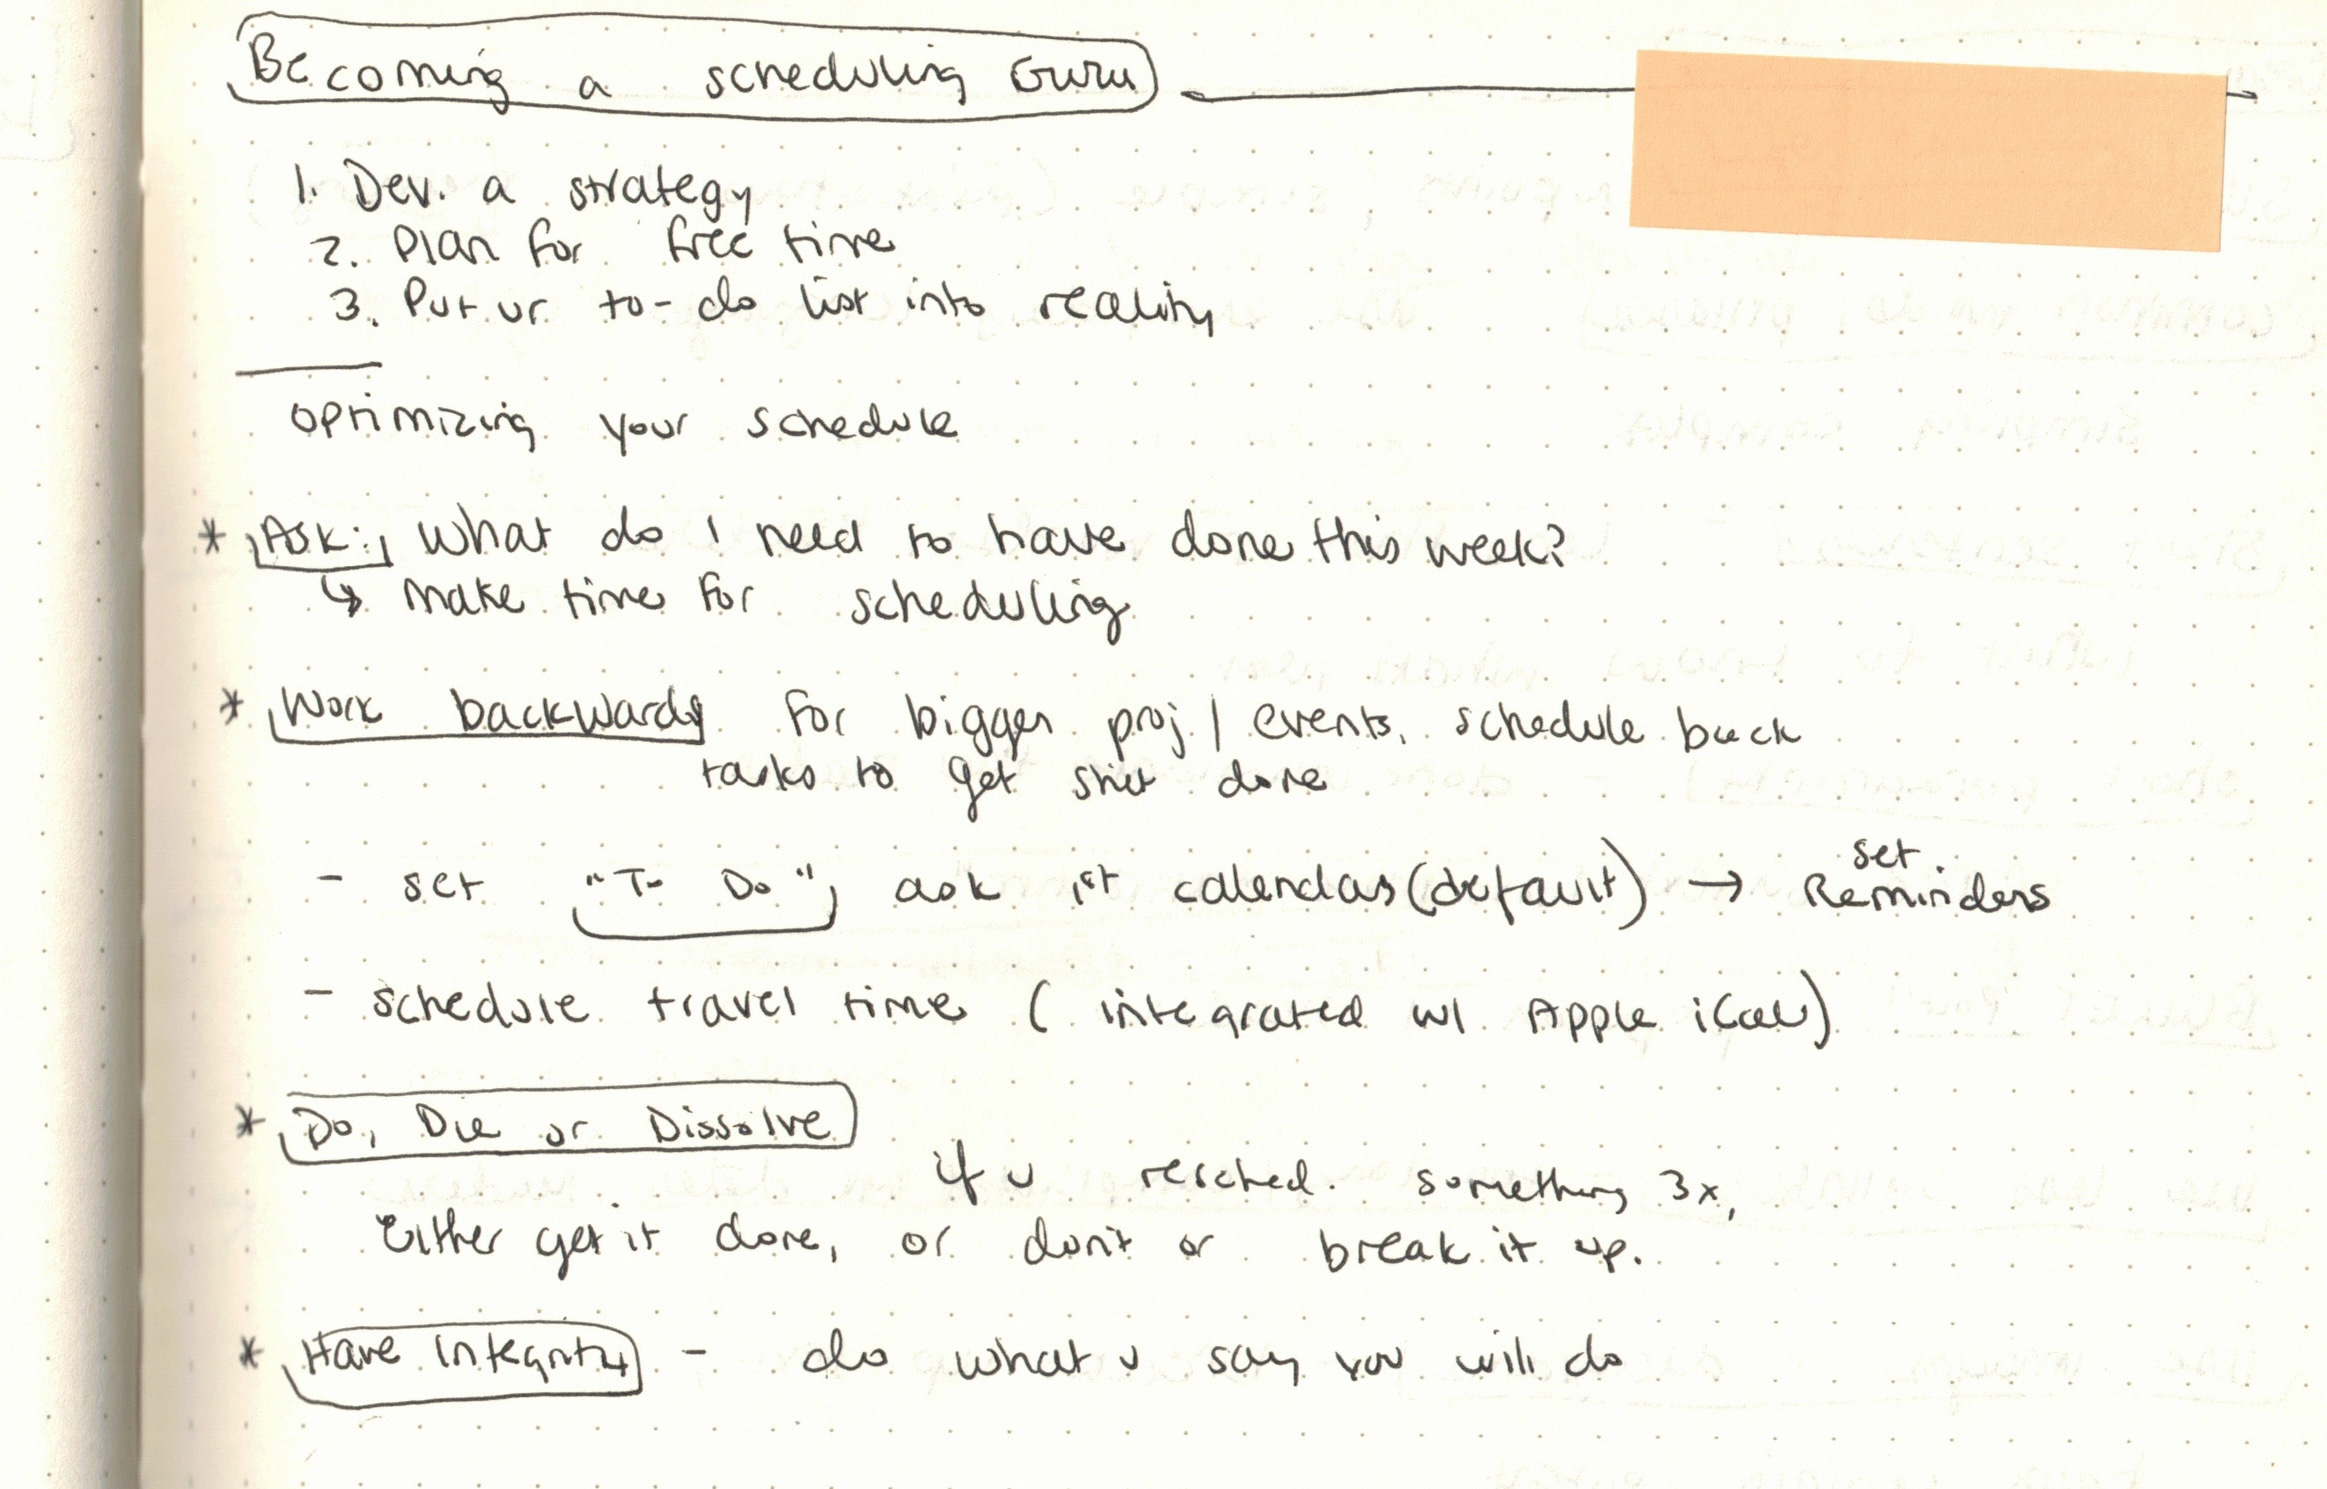 Becoming a scheduling Guru
1. Dev. a strategy
2. Plan for free time
3. Put ur to-do list into reality
Optimizing your schedule
* Ask: What do I need to have done this week?
↳ Make time for scheduling
* Work backwards for bigger proj / events, schedule back
tasks to get shit done
set
- set "To Do" ask 1st calendar (default) → Reminders
- schedule travel time ( integrated w/ Apple iCal)
* Do, Die or Dissolve
if u resched. something 3x,
Either get it done, or don't or break it up.
* Have Integrity - do what u say you will do